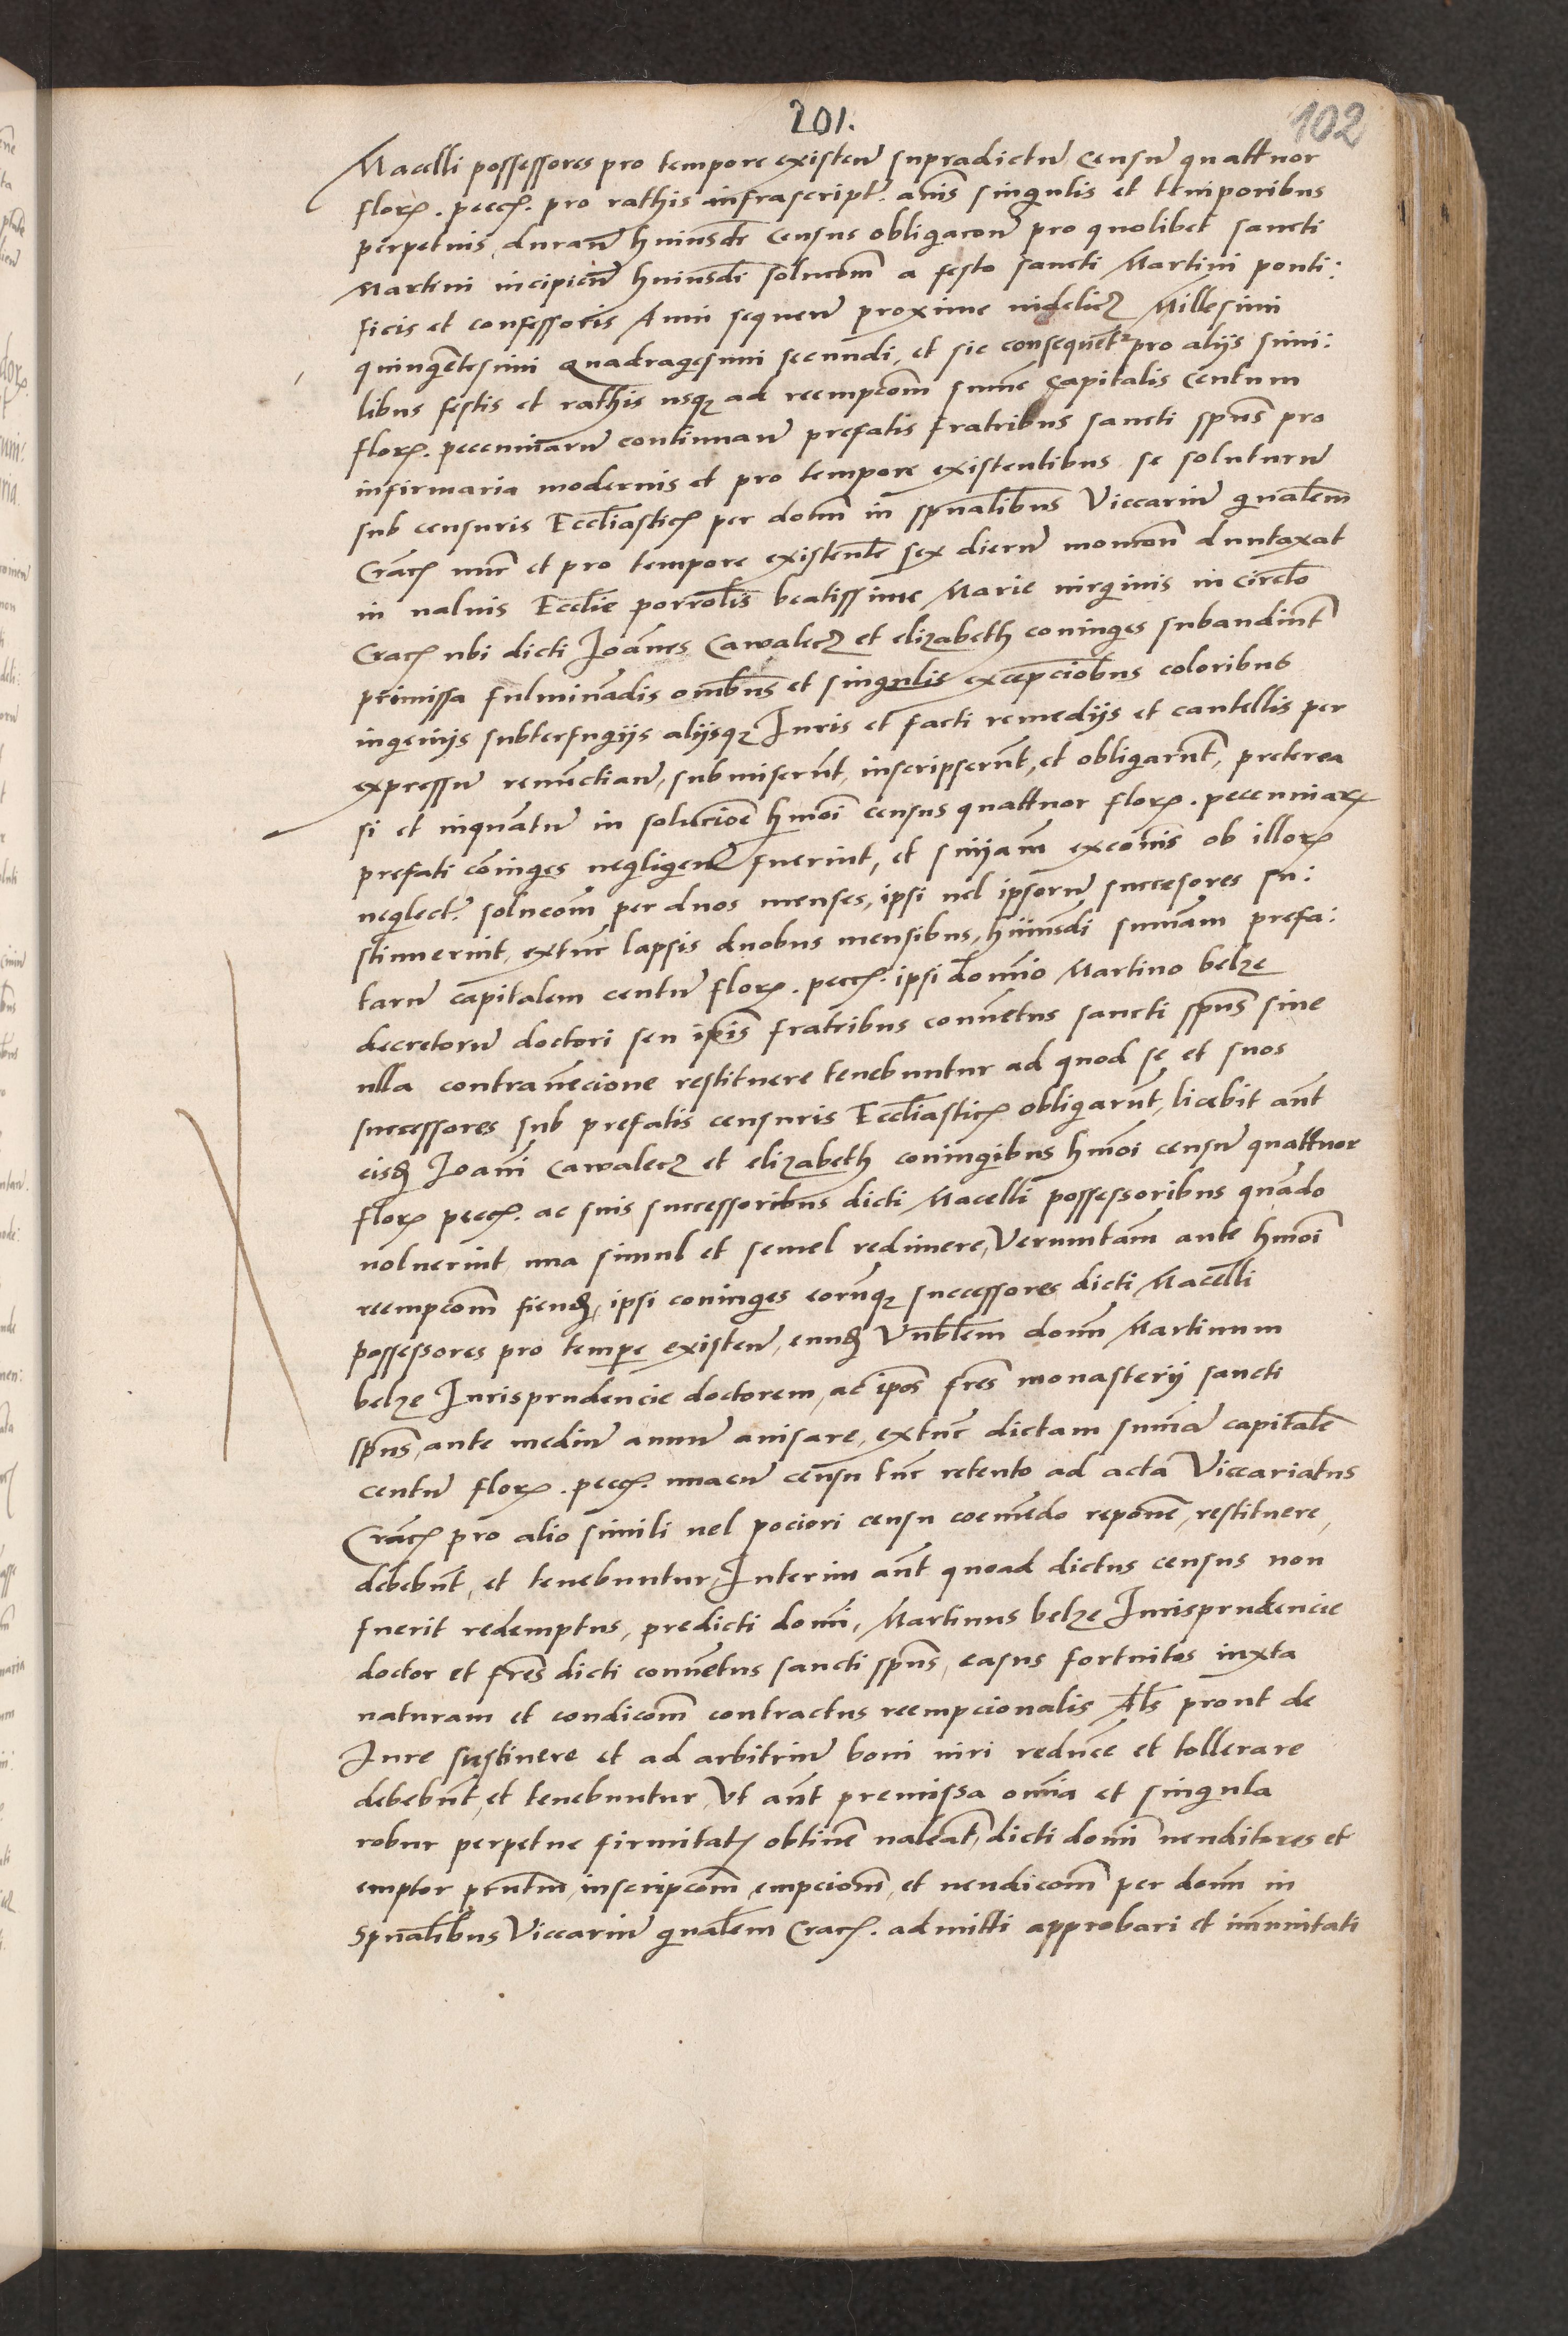 201.
102
Macelli possessores pro tempore existen̄ supradictū Censū quattuor
florꝝ. pecc̄. pro rathis infrascript. an̄is singulis et temporibus
perpetuis, duran̄ huiusd̄i Census obligacon̄ pro quolibet sancti
Martini incipien̄ huiusd̄i solucōm a festo sancti Martini ponti:
ficis et confessoris Anni sequen̄ proxime videlicz Millesimi
quingētesimi Quadragesimi secundi, et sic consequēt pro alijs simi:
libus festis et rathis usqꝫ ad reempcōm sum̄e Capitalis Centum
florꝝ. peccuniarū continuan̄ prefatis fratribus sancti spūs pro
infirmaria modernis et pro tempore existentibus se soluturū
sub censuris Eccl̄iasticꝭ per dōnm in spūalibus Viccariū gn̄alem
Cracꝭ nūc et pro tempore existentē sex dierū monicōn duntaxat
in valuis Eccl̄ie parrol̄is beatissime Marie virginis in circl̄o
Cracꝭ ubi dicti Joān̄es Cawalecz et elizabeth coniuges subaudiūt
primissa fulminādis om̄ibus et singulis excepcion̄bus coloribus
ingenijs subterfugijs alijsqꝫ Juris et facti remedijs et cautellis per
expressū renūctian̄, submiserūt, inscripserūt, et obligarūt, preterea
si et inquātū in solucioē hm̄oi census quattuor florꝝ. peccuniarꝝ
prefati cōiuges negligen̄ fuerint, et sn̄iam excōnis ob illorꝝ
neglect. solucōm per duos menses, ipsi vel ipsorū successores su:
stinuerint, extūc lapsis duobus mensibus, huiusd̄i summam prefa:
tarū capitalem centū florꝝ. pecc̄. ipsi domīo Martino belze
decretorū doctori seu ip̄is fratribus conuētus sancti spūs sine
ulla contrauēcione restituere tenebuntur ad quod se et suos
successores sub prefatis censuris Eccl̄iasticꝭ obligarūt, licebit aūt
eisdꝫ Joāni Cawalecz et elizabeth coniugibus hm̄oi censū quattuor
florꝝ pecc̄. ac suis successoribus dicti Macelli possessoribus quādo
voluerint una simul et semel redimere, Verumtam̄ ante hm̄oi
reempcōm fiendꝫ, ipsi coniuges eorūqꝫ successores dicti Macelli
possessores pro tempe existen̄, eundꝫ Vn̄blem dōnm Martinum
belze Jurisprudencie doctorem, ac ip̄os fr̄es monasterij sancti
spūs, ante mediū annū auisare, extūc dictam summā capitalē
centū florꝝ. pecc̄. unacū censu tūc retento ad acta Viccariatus
Cracꝭ pro alio simili vel pociori censu coemēdo reponē, restituere,
debebūt, et tenebuntur, Interim aūt quoad dictus census non
fuerit redemptus, predicti domi, Martinus belze Jurisprudencie
doctor et fr̄es dicti conuētus sancti spūs, casus fortuitos iuxta
naturam et condicōm contractus reempcionalis Al̄s prout de
Jure sustinere et ad arbitriū boni viri reducē et tollerare
debebūt, et tenebuntur, Vt aūt premissa om̄ia et singula
robur perpetue firmitatꝭ obtinē valeāt, dicti domi venditores et
emptor pn̄tm, inscripcōm, empciōm, et vendicōm per dōnm in
Spūalibus Viccariū gn̄alem Cracꝭ. admitti approbari et immunitati